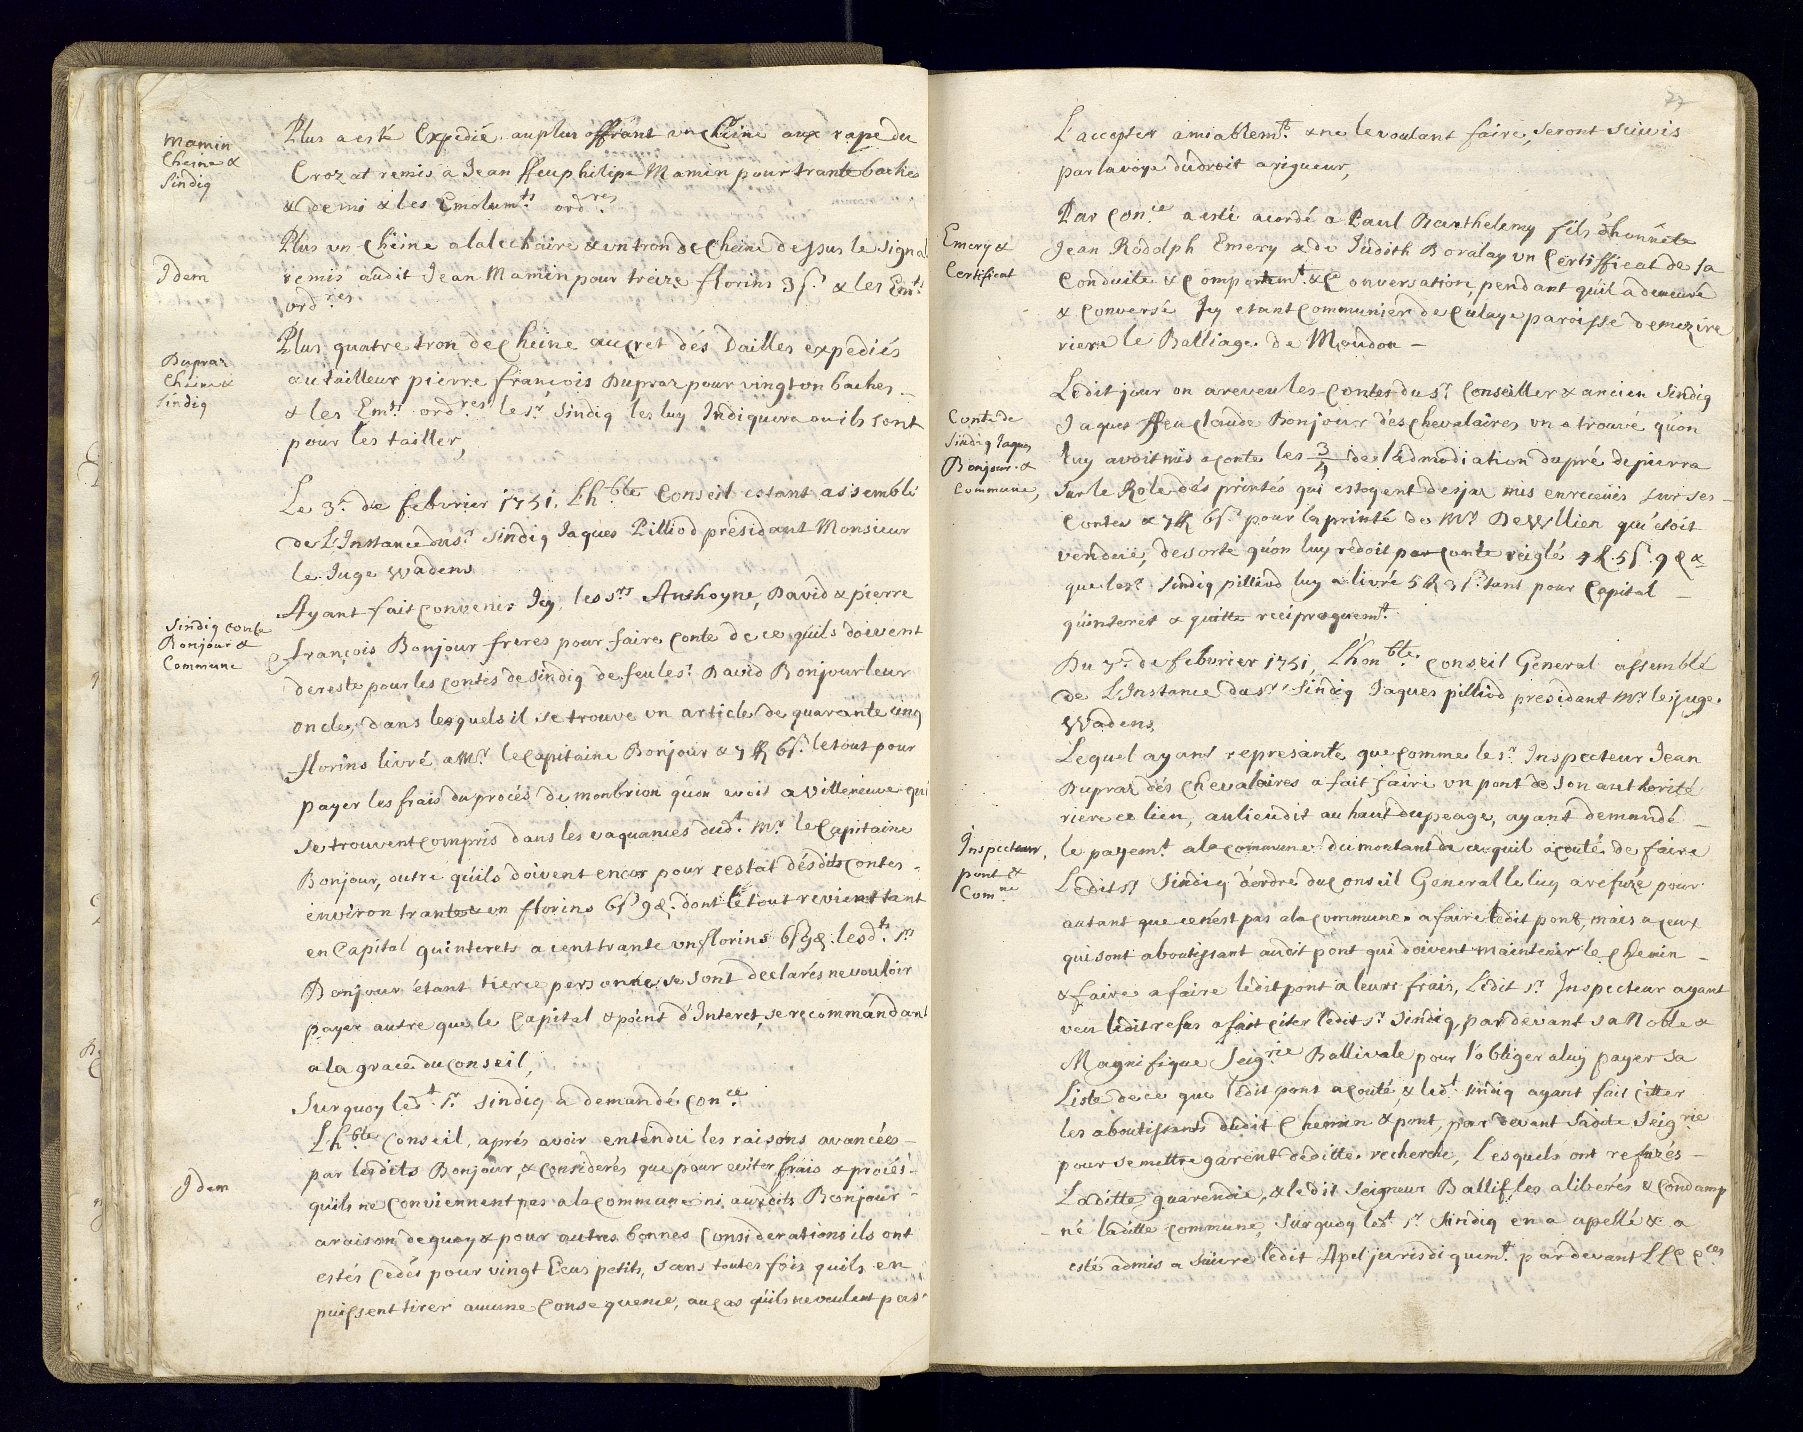 Mamin
Cheine &
Sindiq
Plus a esté Expedié au plus offrant un Cheine aux rape du
Croz at remis a Jean ffeu philipe Mamin pour trante baches
& demi & les Emolum.ts ord.res
Idem
Plus un Cheine a la lechaire & un tron de Cheine dessus le Signal
remis audit Jean Mamin pour treize florins 3 s.s & les Em.ts
ord.res
Dupraz
Cheine &
Sindiq
Plus quatre tron de Cheine au cret dés Dailles expediés
au tailleur pierre françois Dupraz pour vingt un baches
& les Em.ts ord.res le s.r Sindiq les luy Indiquera ou ils sont
pour les tailler,
Le 3.e de febvrier 1751. Lh.ble Conseil estant assemblé
de L'Instance du s.r Sindiq Jaques Pilliod présidant Monsieur
le Juge Wadens
Sindiq conte
Bonjour &
Commune
Ayant fait convenir Icy, les s.rs Anthoyne, David & pierre
françois Bonjour freres pour faire conte de ce qu'ils doivent
de reste pour les contes de sindiq de feu le s.r David Bonjour leur
oncle, dans lesquels il se trouve un article de quarante cinq
florins livré a M.r le Capitaine Bonjour & 7 ff 6 s.s le tout pour
payer les frais du procés de monbrion qu'on avoit a villeneuve qui
se trouvent compris dans les vaquances dud.t M.r le Capitaine
Bonjour, outre qu'ils doivent encor pour restat désdits contes
environ trante un florins 6 s 9 d. dont le tout revient tant
en Capital qu'interets a cent trante un florins 6 s 9 d. lesd.ts s.rs
Bonjour étant tierce personne se sont declarés ne vouloir
payer autre que le Capital & point d'Interet, se recommandant
a la grace du Conseil,
Surquoy led.t s.r Sindiq a demandé con.ce
Idem
Lh.ble Conseil, aprés avoir entendu les raisons avancées
par lesdits Bonjour, & considerés que pour eviter frais & procés
qu'ils ne conviennent pas a la commune ni auxdits Bonjour
a raison de quoy & pour autres bonnes Considerations ils ont
estés Cedés pour vingt Ecus petits, sans toutes fois quils en
puissent tirer aucune Consequence, au cas qu'ils ne veulent pas
77
L'accepter amiablem.t & ne le voulant faire, seront suivis
par la voye du droit a rigueur,
Emery &
Certificat
Par Con.ce a esté acordé a Paul Barthelemy fils d'honnête
Jean Rodolph Emery & de Judith Boralay un Certifficat de sa
Conduite & comportem.t & Conversation, pendant qu'il a demeuré
& conversé Icy etant Communier de Culaye paroisse de mezire
riere le Balliage de Moudon
Conte de
Sindiq Jaques
Bonjour &
Commune,
Ledit jour on a reveu les contes du s.r Conseiller & ancien Sindiq
Jaques ffeu claude Bonjour dés Chevalaires on a trouvé qu'on
luy avoit mis a conte les 3/4 de l'admodiation du pré de pierra
sur le Role dés printés qui estoyent desja mis en receüis sur ses
Contes & 7 ff 6 s.s pour la printé de M.r DeWllien qui étoit
venduë, de sorte qu'on luy redoit par conte reiglé 4 ff. 5 s.s 9 d &
que le s.r Sindiq pilliod luy a livré 5 ff 3 s.s tant pour Capital
qu'interêt & quitte reciproquem.t
Du 7.e de febvrier 1751, L'hon.ble Conseil General assemblé
de L'Instance du s.r Sindiq Jaques pilliod présidant M.r le juge
Wadens,
Inspecteur,
pont &
Com.ne
Lequel ayant représanté que comme le s.r Inspecteur Jean
Dupraz dés Chevalaires a fait faire un pont de son authorité
riere ce lieu, au lieudit au haut du peage, ayant demandé
le payem.t a la commune du montant de ce qu'il a couté de faire
Ledit s.r Sindiq d'ordre du Conseil General le luy a refuzé pour
autant que ce n'est pas a la Commune a faire ledit pont, mais a ceux
qui sont aboutissant audit pont qui doivent maintenir le Chemin
& faire a faire ledit pont a leurs frais, Ledit s.r Inspecteur ayant
veu ledit refus a fait citer ledit s.r Sindiq, par devant sa Noble &
Magnifique Seig.rie Ballivale pour l'obliger a luy payer sa
Liste de ce que ledit pont a couté & led.t sindiq ayant fait citter
les aboutissants dudit Chemin & pont, par devant sadite Seig.rie
pour se mettre garent de ditte recherche, Lesquels ont refuzés
Laditte guarendie, & ledit Seigneur Ballif, les a liberés & condamp
né laditte commune, surquoy led.t s.r Sindiq en a apellé & a
esté admis a suivre ledit Apel juridiquem.t par devant LL EE.ces